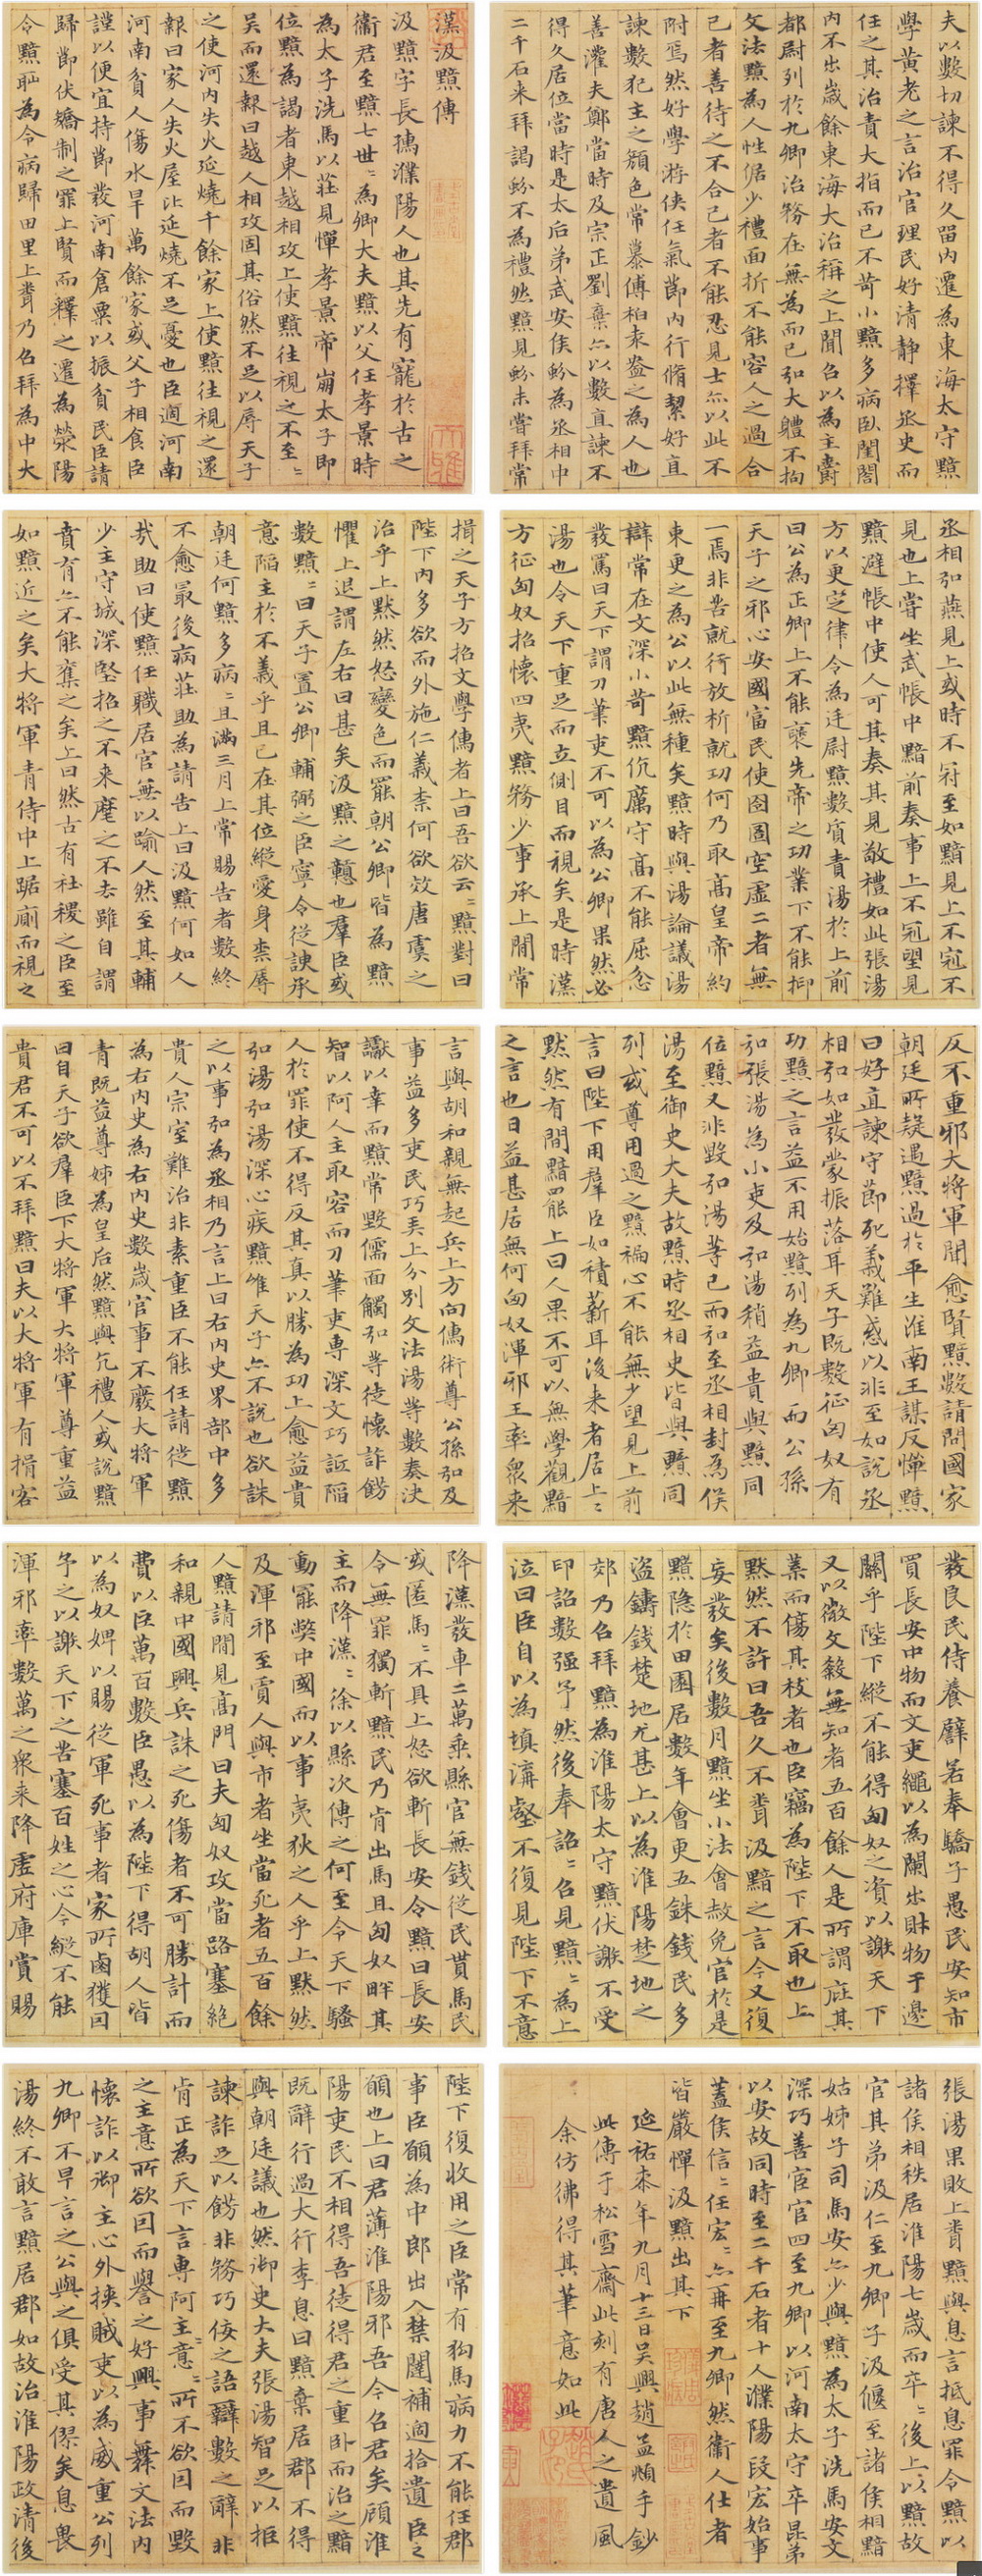 漢汲黯傳
汲黯字長孺濮陽人也其先有寵於古之
衛君至黯七世〻為卿大夫黯以父任孝景時
為太子洗馬以莊見憚孝景帝崩太子即
位黯為謁者東越相攻上使黯往視之不至〻
吳而還報曰越人相攻固其俗然不足以辱天子
之使河內失火延燒千餘家上使黯往視之還
報曰家人失火屋比延燒不足憂也臣過河南
河南貧人傷水旱萬餘家或父子相食臣
謹以便宜持節發河南倉粟以振貧民臣請
歸節伏矯制之罪上賢而釋之遷為滎陽
令黯恥為令病歸田里上聞乃召拜為中大
夫以數切諫不得久留內遷為東海太守黯
學黃老之言治官理民好清靜擇丞史而
任之其治責大指而已不苛小黯多病臥閨閤
內不出歲餘東海大治稱之上聞召以為主爵
都尉列於九卿治務在無為而已弘大體不拘
文法黯為人性倨少禮面折不能容人之過合
己者善待之不合己者不能忍見士亦以此不
附焉然好學游俠任氣節內行脩絜好直
諫數犯主之顏色常慕傅柏袁盎之為人也
善灌夫鄭當時及宗正劉棄亦以數直諫不
得久居位當時是太后弟武安侯蚡為丞相中
二千石來拜謁蚡不為禮然黯見蚡未嘗拜常
揖之天子方招文學儒者上曰吾欲云〻黯對曰
陛下內多欲而外施仁義柰何欲效唐虞之
治乎上默然怒變色而罷朝公卿皆為黯
懼上退謂左右曰甚矣汲黯之戇也羣臣或
數黯〻曰天子置公卿輔弼之臣寧令從諛承
意陷主於不義乎且已在其位縱愛身柰辱
朝廷何黯多病〻且滿三月上常賜告者數終
不愈最後病莊助為請告上曰汲黯何如人
哉助曰使黯任職居官無以踰人然至其輔
少主守城深堅招之不來麾之不去雖自謂
賁育亦不能奪之矣上曰然古有社稷之臣至
如黯近之矣大將軍青侍中上踞廁而視之
丞相弘燕見上或時不冠至如黯見上不冠不
見也上嘗坐武帳中黯前奏事上不冠望見
黯避帳中使人可其奏其見敬禮如此張湯
方以更定律令為廷尉黯數質責湯於上前
曰公為正卿上不能襃先帝之功業下不能抑
天子之邪心安國富民使囹圄空虛二者無
一焉非苦就行放析就功何乃取高皇帝約
束更之為公以此無種矣黯時與湯論議湯
辯常在文深小苛黯伉厲守高不能屈忿
發罵曰天下謂刀筆吏不可以為公卿果然必
湯也令天下重足而立側目而視矣是時漢
方征匈奴招懷四夷黯務少事承上閒常
言與胡和親無起兵上方向儒術尊公孫弘及
事益多吏民巧弄上分別文法湯等數奏決
讞以幸而黯常毀儒面觸弘等徒懷詐飾
智以阿人主取容而刀筆吏專深文巧詆陷
人於罪使不得反其真以勝為功上愈益貴
弘湯弘湯深心疾黯唯天子亦不說也欲誅
之以事弘為丞相乃言上曰右內史界部中多
貴人宗室難治非素重臣不能任請徙黯
為右內史為右內史數歲官事不廢大將軍
青既益尊姊為皇后然黯與亢禮人或說黯
曰自天子欲羣臣下大將軍大將軍尊重益
貴君不可以不拜黯曰夫以大將軍有揖客
反不重邪大將軍聞愈賢黯數請問國家
朝廷所疑遇黯過於平生淮南王謀反憚黯
曰好直諫守節死義難惑以非至如說丞
相弘如發蒙振落耳天子既數征匈奴有
功黯之言益不用始黯列為九卿而公孫
弘張湯為小吏及弘湯稍益貴與黯同
位黯又非毀弘湯等已而弘至丞相封為侯
湯至御史大夫故黯時丞相史皆與黯同
列或尊用過之黯褊心不能無少望見上前
言曰陛下用羣臣如積薪耳後來者居上〻
默然有間黯罷上曰人果不可以無學觀黯
之言也日益甚居無何匈奴渾邪王率衆來
降漢發車二萬乘縣官無錢從民貰馬民
或匿馬〻不具上怒欲斬長安令黯曰長安
令無罪獨斬黯民乃肯出馬且匈奴畔其
主而降漢〻徐以縣次傳之何至令天下騷
動罷弊中國而以事夷狄之人乎上默然
及渾邪至賈人與市者坐當死者五百餘
人黯請閒見高門曰夫匈奴攻當路塞絕
和親中國興兵誅之死傷者不可勝計而
費以臣萬百數臣愚以為陛下得胡人皆
以為奴婢以賜從軍死事者家所鹵獲因
予之以謝天下之苦塞百姓之心今縱不能
渾邪率數萬之衆來降虛府庫賞賜
發良民侍養譬若奉驕子愚民安知市
買長安中物而文吏繩以為闌出財物于邊
關乎陛下縱不能得匈奴之資以謝天下
又以微文殺無知者五百餘人是所謂庇其
葉而傷其枝者也臣竊為陛下不取也上
默然不許曰吾久不聞汲黯之言今又復
妄發矣後數月黯坐小法會赦免官於是
黯隱於田園居數年會更五銖錢民多
盜鑄錢楚地尤甚上以為淮陽楚地之
郊乃召拜黯為淮陽太守黯伏謝不受
印詔數强予然後奉詔〻召見黯〻為上
泣曰臣自以為填溝壑不復見陛下不意
陛下復收用之臣常有狗馬病力不能任郡
事臣願為中郎出入禁闥補過拾遺臣之
願也上曰君薄淮陽邪吾今召君矣顧淮
陽吏民不相得吾徒得君之重臥而治之黯
既辭行過大行李息曰黯棄居郡不得
與朝廷議也然御史大夫張湯智足以拒
諫詐足以飾非務巧佞之語辯數之辭非
肯正為天下言專阿主意〻所不欲因而毀
之主意所欲因而譽之好興事舞文法內
懷詐以御主心外挾賊吏以為威重公列
九卿不早言之公與之俱受其僇矣息畏
湯終不敢言黯居郡如故治淮陽政清後
張湯果敗上聞黯與息言抵息罪令黯以
諸侯相秩居淮陽七歲而卒〻後上以黯故
官其弟汲仁至九卿子汲偃至諸侯相黯
姑姊子司馬安亦少與黯為太子洗馬安文
深巧善宦官四至九卿以河南太守卒昆弟
以安故同時至二千石者十人濮陽段宏始事
蓋侯信〻任宏〻亦再至九卿然衛人仕者
皆嚴憚汲黯出其下
延祐柒年九月十三日吳興趙孟頫手鈔
此傳于松雪齋此刻有唐人之遺風
余仿佛得其筆意如此